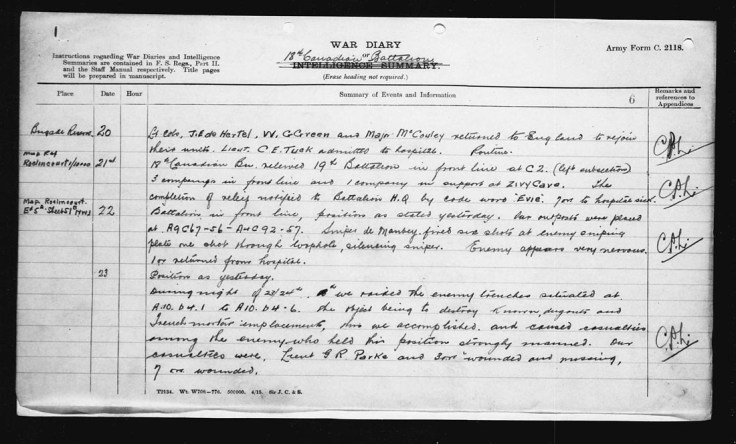 1
WAR DIARY
or
18th Canadian Battalion
INTELLIGENCE SUMMARY.
(Erase heading not required.)
Army Form C. 2118.
Instructions regarding War Diaries and Intelligence
Summaries are contained in F. S. Regs., Part II.
and the Staff Manual respectively. Title pages
will be prepared in manuscript.
Place Date Hour Summary of Events and Information 6 Remarks and references to Appendices
20 W. G Green and Major McCowley returned to England to rejoin
their units. Lieut. C. E. Tuck admitted to hospital. Routine.
Map Ref
21st 18th Canadian Bn. relieved 19th Battalion in front line at C2. (left subsection)
3 companies in front line and 1 company in support at Zivy Cave. The
completion of relief notified to Battalion H.Q by code word "Evie". to hospital sick.
22 Battalion in front line, positions as stated yesterday. Our outposts were placed
at Sniper de Manbey fired six shots at enemy sniping
plate one shot through loophole, silencing sniper. Enemy appears very nervous.
1 or returned from hospital.
23 Positions as yesterday.
During night of 23/24th we raided the enemy trenches situated at
A.10. D4.1 to A10. D4-6. the object being to destroy dugouts and
Trench mortar emplacements, this we accomplished, and caused casualties
among the enemy who held his position strongly manned. Our
casualties were, Lieut G R Parke and 3 ors wounded and missing,
7 ors wounded.
T2134. Wt. W708—776. 500000. 4/15. Sir J. C. & S.